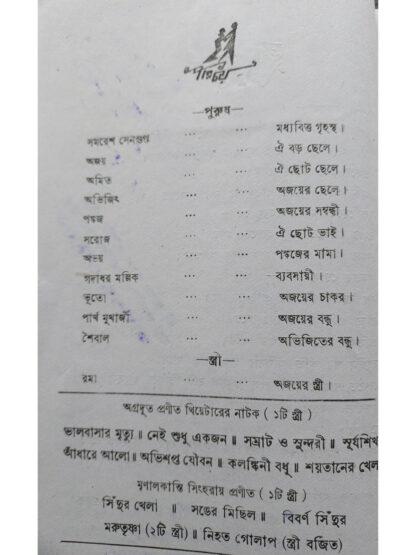 পরিচয়
—পুরুষ—
সমরেশ সেনগুপ্ত ... ... মধ্যবিত্ত গৃহস্থ।
অজয় ... ... ঐ বড় ছেলে।
অমিত ... ... ঐ ছোট ছেলে।
অভিজিৎ ... ... অজয়ের ছেলে।
পঙ্কজ ... ... অজয়ের সম্বন্ধী।
সরোজ ... ... ঐ ছোট ভাই।
অভয় ... ... পঙ্কজের মামা।
গদাধর মল্লিক ... ... ব্যবসায়ী।
ভূতো ... ... অজয়ের চাকর।
পার্থ মুখার্জী ... ... অজয়ের বন্ধু।
শৈবাল ... ... অভিজিতের বন্ধু।
—স্ত্রী—
রমা ... ... অজয়ের স্ত্রী।
অগ্রদূত প্রণীত থিয়েটারের নাটক ( ১টি স্ত্রী )
ভালবাসার মৃত্যু॥ নেই শুধু একজন॥ সম্রাট ও সুন্দরী॥ সূর্যশিখ
আঁধারে আলো॥ অভিশপ্ত যৌবন॥ কলঙ্কিনী বধূ॥ শয়তানের খেল
মৃণালকান্তি সিংহরায় প্রণীত ( ১টি স্ত্রী )
সিঁদুর খেলা ॥ সঙের মিছিল॥ বিবর্ণ সিঁদুর
মরুতৃষ্ণা (২টি স্ত্রী)॥ নিহত গোলাপ (স্ত্রী বর্জিত)